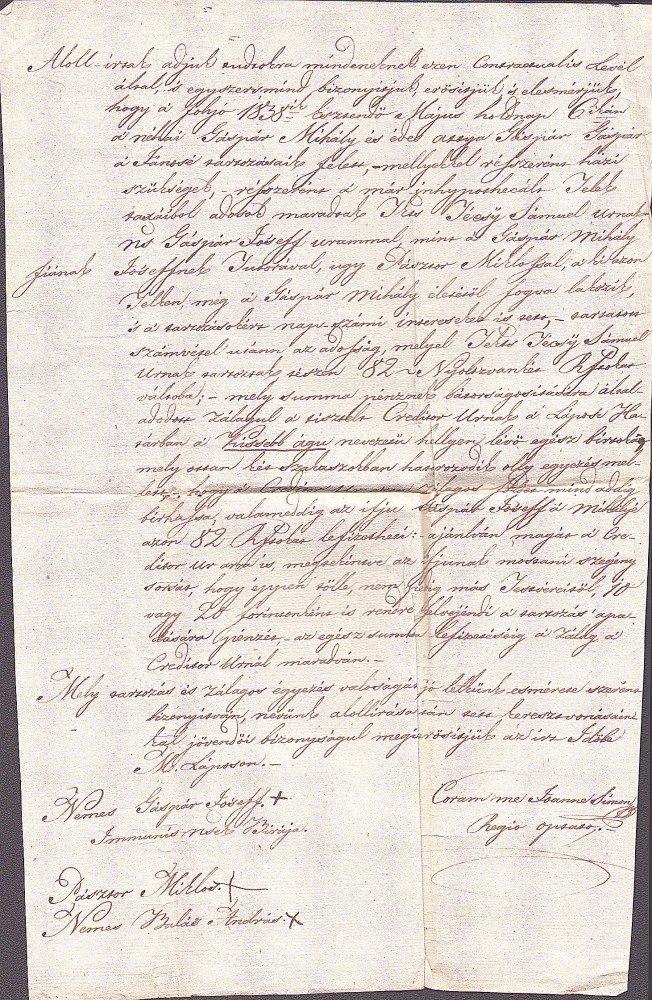 Aloll-irtak adjuk tudtokra mindeneknek ezen Contractualis Levél
által, s egyszersmind bizonyitjuk, erösitjük, s elesmérjük,
hogy á folyó 1838ik Esztendö Május holdnap
á néhai Gáspár Mihály és édes attya Gáspár Gáspár
á Jánosé tartozásaik felett, - mellyekkel részszerént házi
szükségek, - részszerént á már inhypothecált Telek
taxáiból adósok maradtak Tkts Técsÿ Sámuel Urnak
ns Gáspár Joseff urammal, mint á Gáspár Mihály
fiának Joseffnek Tutorával, ugy Pásztor Miklossal, á ki azon
Telken, még á Gáspár Mihály életétöl fogva lakszik,
s á tartozásokért nap-számi intereseket is tett, - tartatott
számvétel utánn az adósság, melyel Tekts Técsÿ Sámuel
Urnak tartoztak tészen 82 ~ Nyoltzvankét Rftokat
váltoba; - mely summa pénznek bátorságositására által-
adodott Zálagul á tisztelt Creditor Urnak á Láposi Ha-
tárban á Kissebb águ nevezetü hellyen lévö egész birtok
mely ottan két szakaszokban határozodik olly egyezés mel-
lett, hogy á Creditor Ur mind addig
birhassa, valameddig az ifju Gáspár Joseff á Mihályé
azon 82 Rftokat lefizetheti: - ajánlván magát á Cre-
ditor Ur arra is, megtekintve az ifjunak mostani szegény
sorsát, hogy éppen tölle, nem pedig más Testvéreitöl, 10
vagy 20 forintonként is rendre elvejéndi á tartozás apa-
dására pénzét, - az egész summa lefizetéséig á Zálag á
Creditor Urnál maradván. -
Mely tartozás és Zálagos egyezés valoságát jó lelkünk esmérete szerént
bizonyitván, nevünk alollirása után tett keresztvonásaink-
kal jövendöi bizonyságul megierösitjük az irt Idöbe
M. Láposon. -
Nemes Gáspár Joseff. +
Immunis nsek Birája.
Coram me Joanne Simon
Regio
Pásztor Miklos. +
Nemes Balás András. +